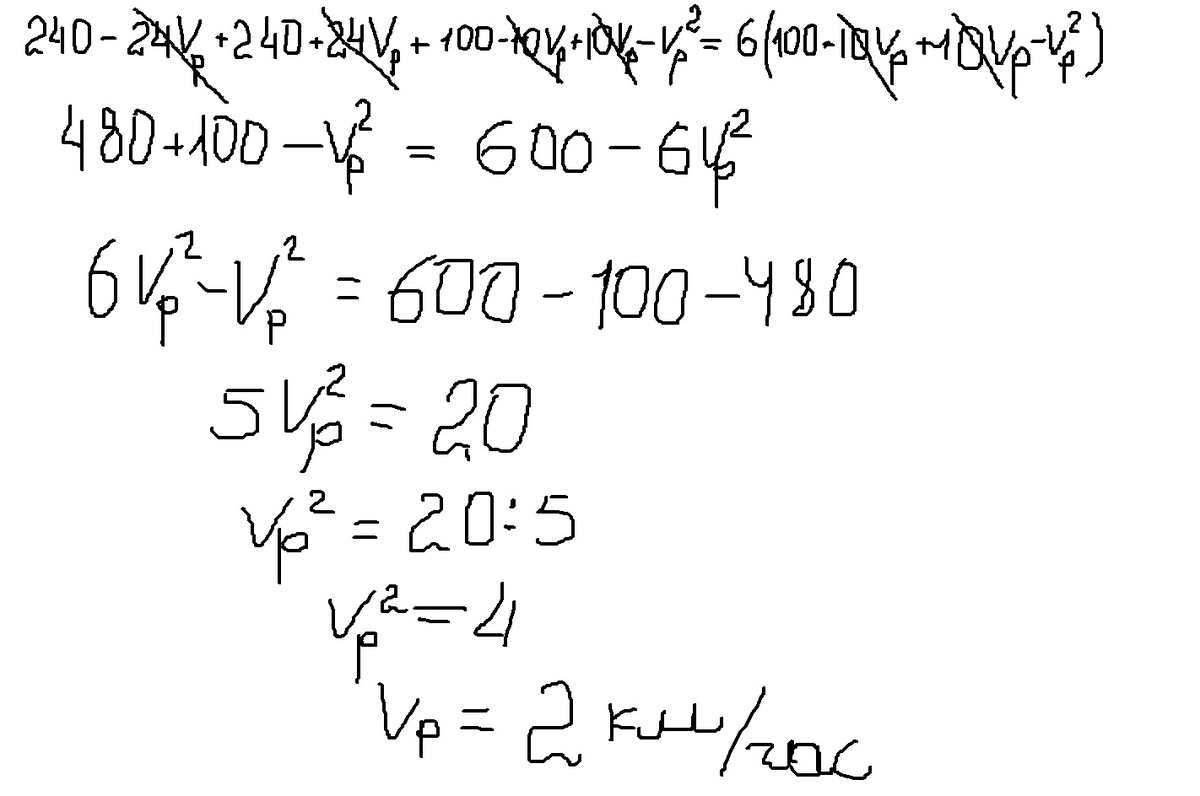 240 - 24Vₚ + 240 + 24Vₚ + 100 - 10Vₚ + 10Vₚ - Vₚ² = 6(100 - 10Vₚ + 10Vₚ - Vₚ²)
480 + 100 - Vₚ² = 600 - 6Vₚ²
6Vₚ² - Vₚ² = 600 - 100 - 480
5Vₚ² = 20
Vₚ² = 20:5
Vₚ² = 4
Vₚ = 2 км/час